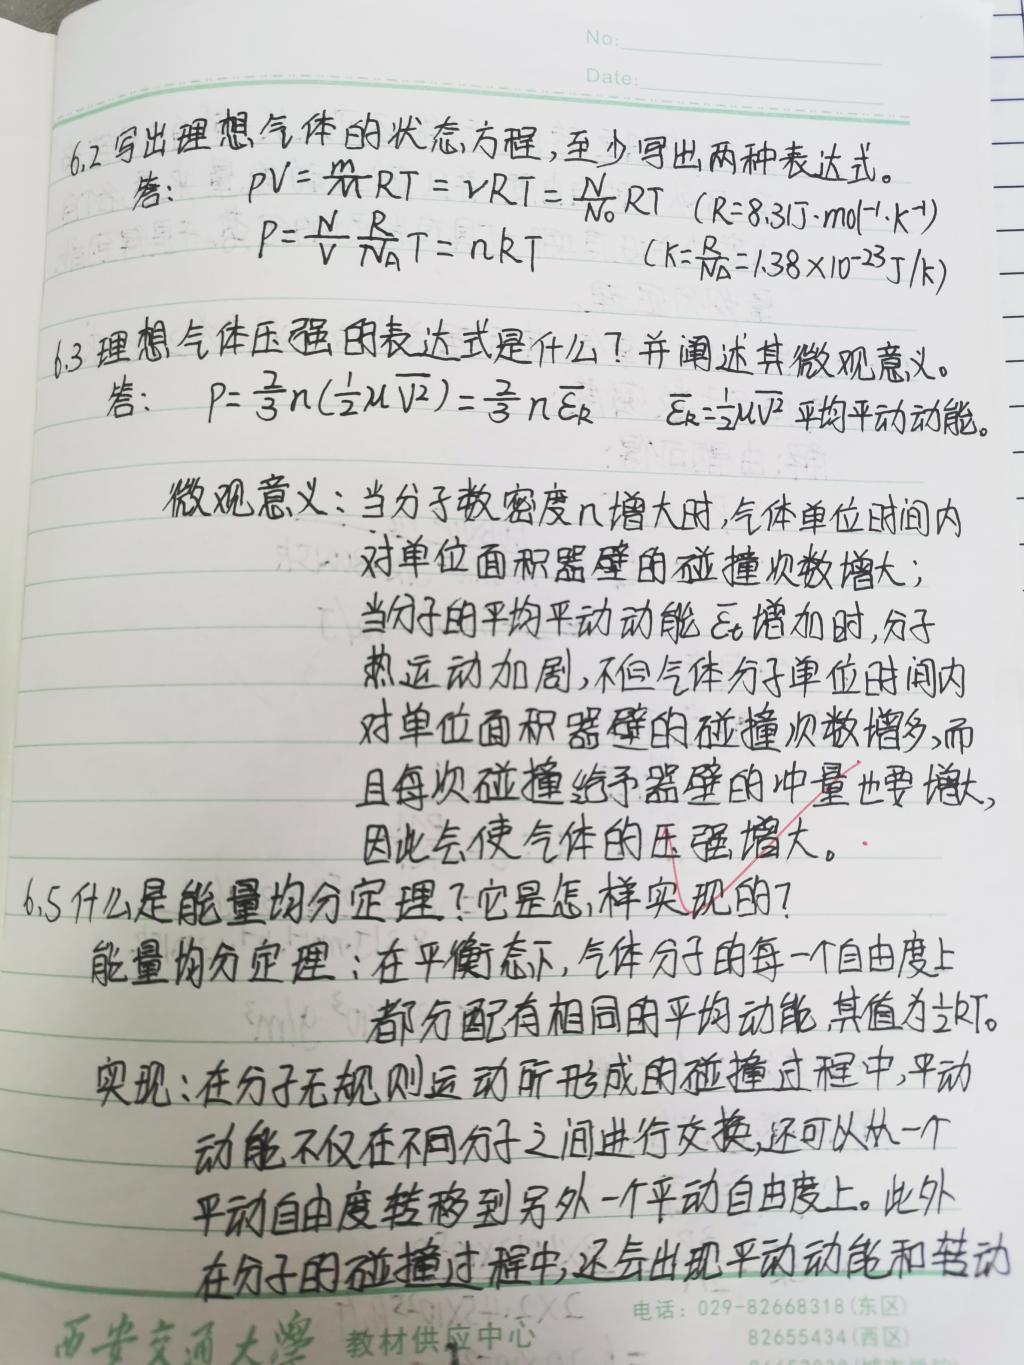 No:
Date:
6.2 写出理想气体的状态方程,至少写出两种表达式。
答: pV=m/M RT=νRT=N/N₀ RT (R=8.31J·mol⁻¹·k⁻¹)
P=N/V R/N_A T=nkT (k=R/N_A=1.38×10⁻²³J/k)
6.3 理想气体压强的表达式是什么?并阐述其微观意义。
答: P=2/3 n(1/2 μV̅²)=2/3 n ε̅k ε̅k=1/2 μV̅² 平均平动动能。
微观意义:当分子数密度n增大时,气体单位时间内
对单位面积器壁的碰撞次数增大;
当分子的平均平动动能ε̅t增加时,分子
热运动加剧,不但气体分子单位时间内
对单位面积器壁的碰撞次数增多,而
且每次碰撞给予器壁的冲量也要增大,
因此会使气体的压强增大。
6.5 什么是能量均分定理?它是怎样实现的?
能量均分定理:在平衡态下,气体分子的每一个自由度上
都分配有相同的平均动能,其值为1/2kT。
实现:在分子无规则运动所形成的碰撞过程中,平动
动能不仅在不同分子之间进行交换,还可以从一个
平动自由度转移到另外一个平动自由度上。此外
在分子的碰撞过程中,还会出现平动动能和转动
西安交通大学 教材供应中心 电话:029-82668318(东区)
82655434(西区)